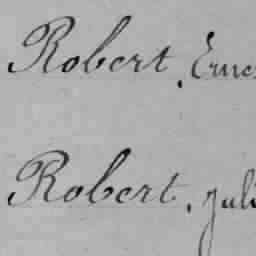 Robert, Erne
Robert, Juli